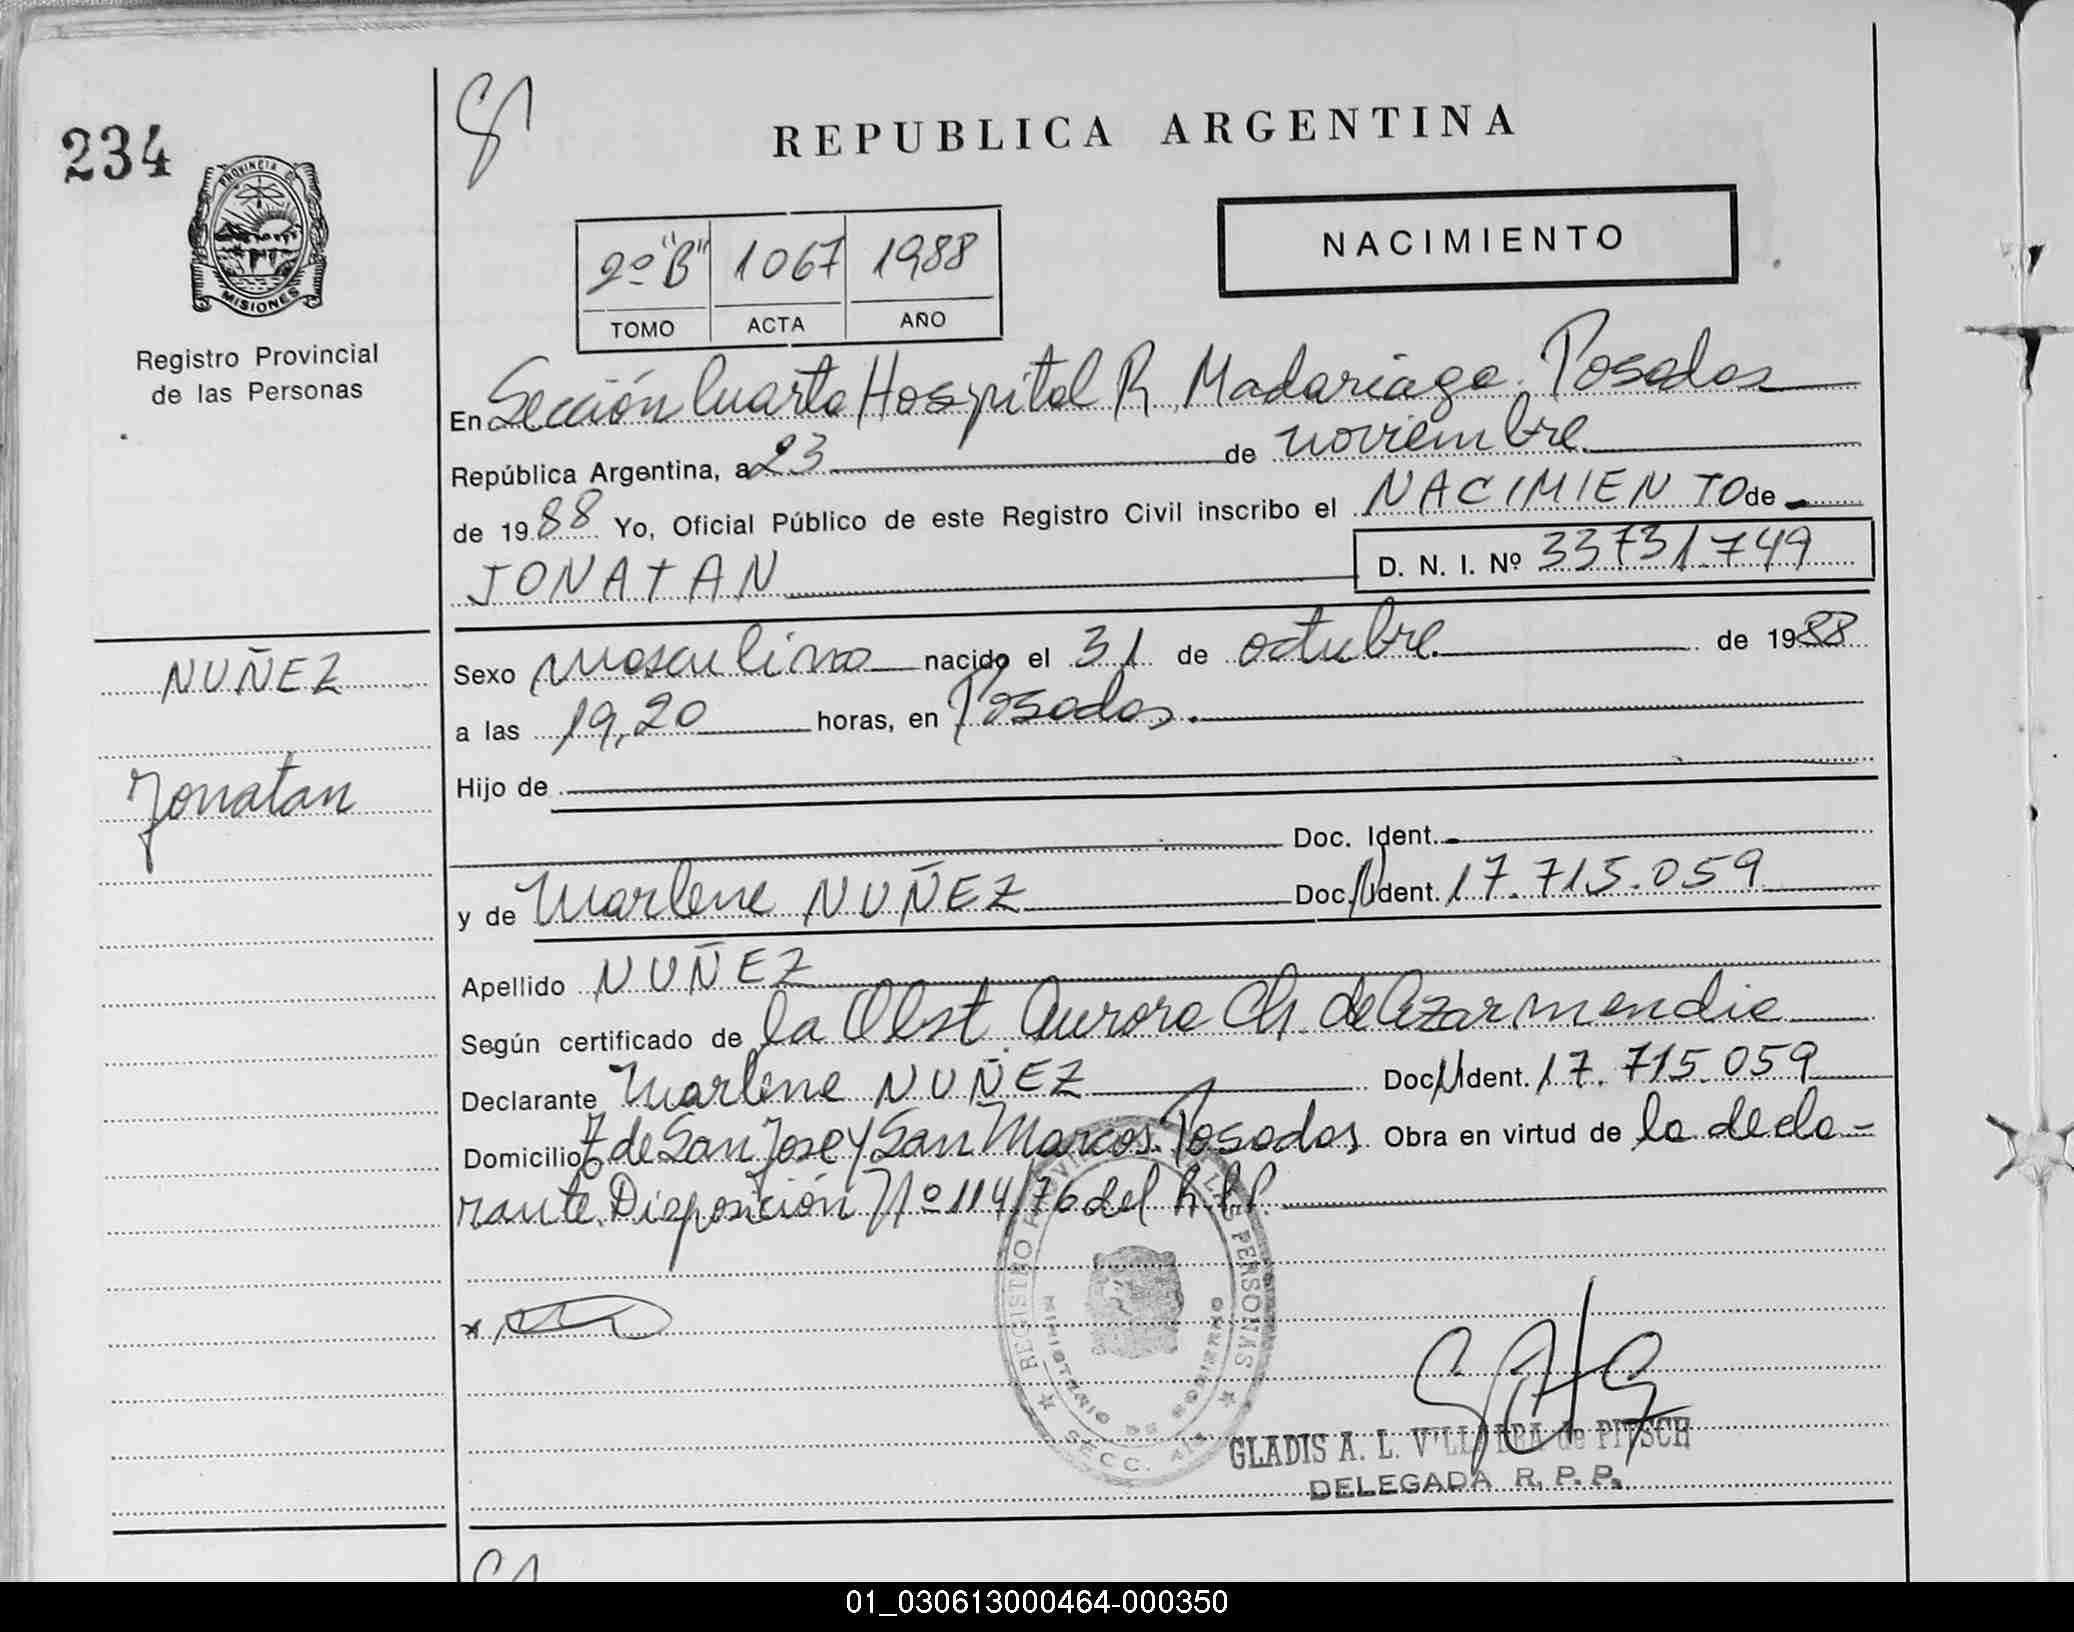 234
PROVINCIA DE
MISIONES
Registro Provincial
de las Personas
NUÑEZ
Jonatan
REPUBLICA ARGENTINA
2º "B" 1067 1988
TOMO ACTA AÑO
NACIMIENTO
En Sección Cuarta Hospital R. Madariaga. Posadas
República Argentina, a 23 de noviembre
de 1988 Yo, Oficial Público de este Registro Civil inscribo el NACIMIENTO de
JONATAN D. N. I. Nº 33731.749
Sexo masculino nacido el 31 de octubre de 1988
a las 19,20 horas, en Posadas.
Hijo de
Doc. Ident.
y de Marlene NUÑEZ Doc. Ident. 17.715.059
Apellido NUÑEZ
Según certificado de la Obst. Aurora Ch. de Azarmendia
Declarante Marlene NUÑEZ Doc. Ident. 17.715.059
Domicilio de San José y San Marcos. Posadas Obra en virtud de la decla-
rante. Disposición Nº 114/76 del R.P.P.
REGISTRO PROVINCIAL DE LAS PERSONAS
MINISTERIO DE GOBIERNO
SECC.
GLADIS A. L. VILLALBA de PITSCH
DELEGADA R. P. P.
01_030613000464-000350